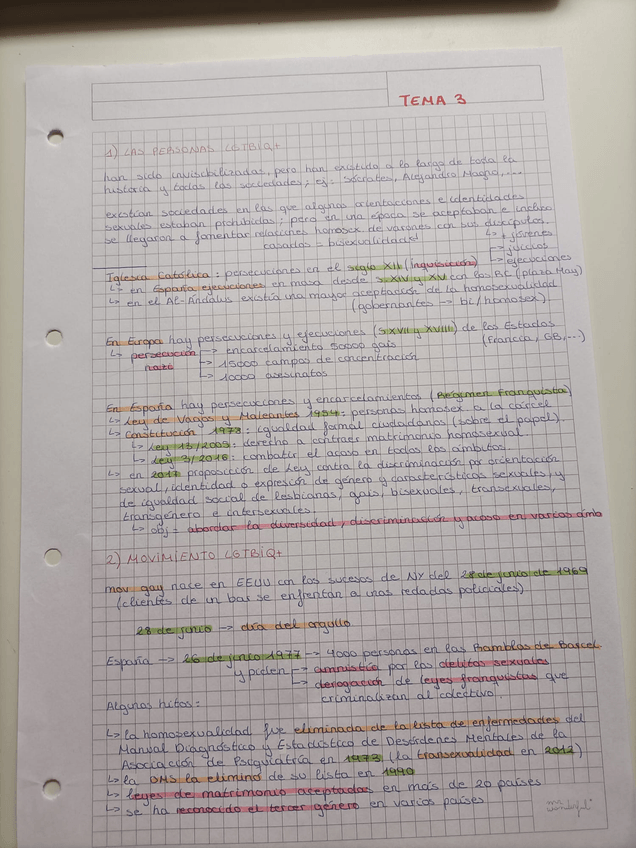 TEMA 3
1) LAS PERSONAS LGTBIQ+
han sido invisibilizadas, pero han existido a lo largo de toda la
historia y todas las sociedades; ej: Sócrates, Alejandro Magno,...
existían sociedades en las que algunas orientaciones e identidades
sexuales estaban prohibidas; pero en una época se aceptaban e incluso
se llegaron a fomentar relaciones homosex. de varones con sus discípulos.
casados = bisexualidad
↳ + jóvenes
→ juicios
→ ejecuciones
Iglesia Católica: persecuciones en el siglo XII (inquisición)
↳ en España ejecuciones en masa desde s.XIV y XV con los RC (plaza May)
↳ en el Al-Ándalus existía una mayor aceptación de la homosexualidad
(gobernantes → bi/homosex)
En Europa hay persecuciones y ejecuciones (s.XVII y XVIII) de los Estados
(Francia, GB,...)
↳ persecución nazi
→ encarcelamiento 50000 gais
→ 15000 campos de concentración
→ 10000 asesinatos
En España hay persecuciones y encarcelamientos (Régimen Franquista)
↳ Ley de Vagos y Maleantes 1954: personas homosex a la cárcel
↳ Constitución 1978: igualdad formal ciudadanos (sobre el papel).
↳ Ley 13/2005: derecho a contraer matrimonio homosexual
↳ Ley 3/2016: combatir el acoso en todos los ámbitos
↳ en 2017 proposición de Ley contra la discriminación por orientación
sexual, identidad o expresión de género y características sexuales, y
de igualdad social de lesbianas, gais, bisexuales, transexuales,
transgénero e intersexuales.
↳ obj = abordar la diversidad, discriminación y acoso en varios amb
2) MOVIMIENTO LGTBIQ+
mov. gay nace en EEUU con los sucesos de NY del 28 de junio de 1969
(clientes de un bar se enfrentan a unas redadas policiales)
28 de junio → día del orgullo
España → 26 de junio 1977 → 4000 personas en las Ramblas de Barcel
y piden → amnistía por los delitos sexuales
→ derogación de leyes franquistas que
criminalizan al colectivo.
Algunos hitos:
↳ la homosexualidad fue eliminada de la lista de enfermedades del
Manual Diagnóstico y Estadística de Desórdenes Mentales de la
Asociación de Psiquiatría en 1973 (la transexualidad en 2012)
↳ la OMS la eliminó de su lista en 1990
↳ leyes de matrimonio aceptadas en más de 20 países
↳ se ha reconocido el tercer género en varios países